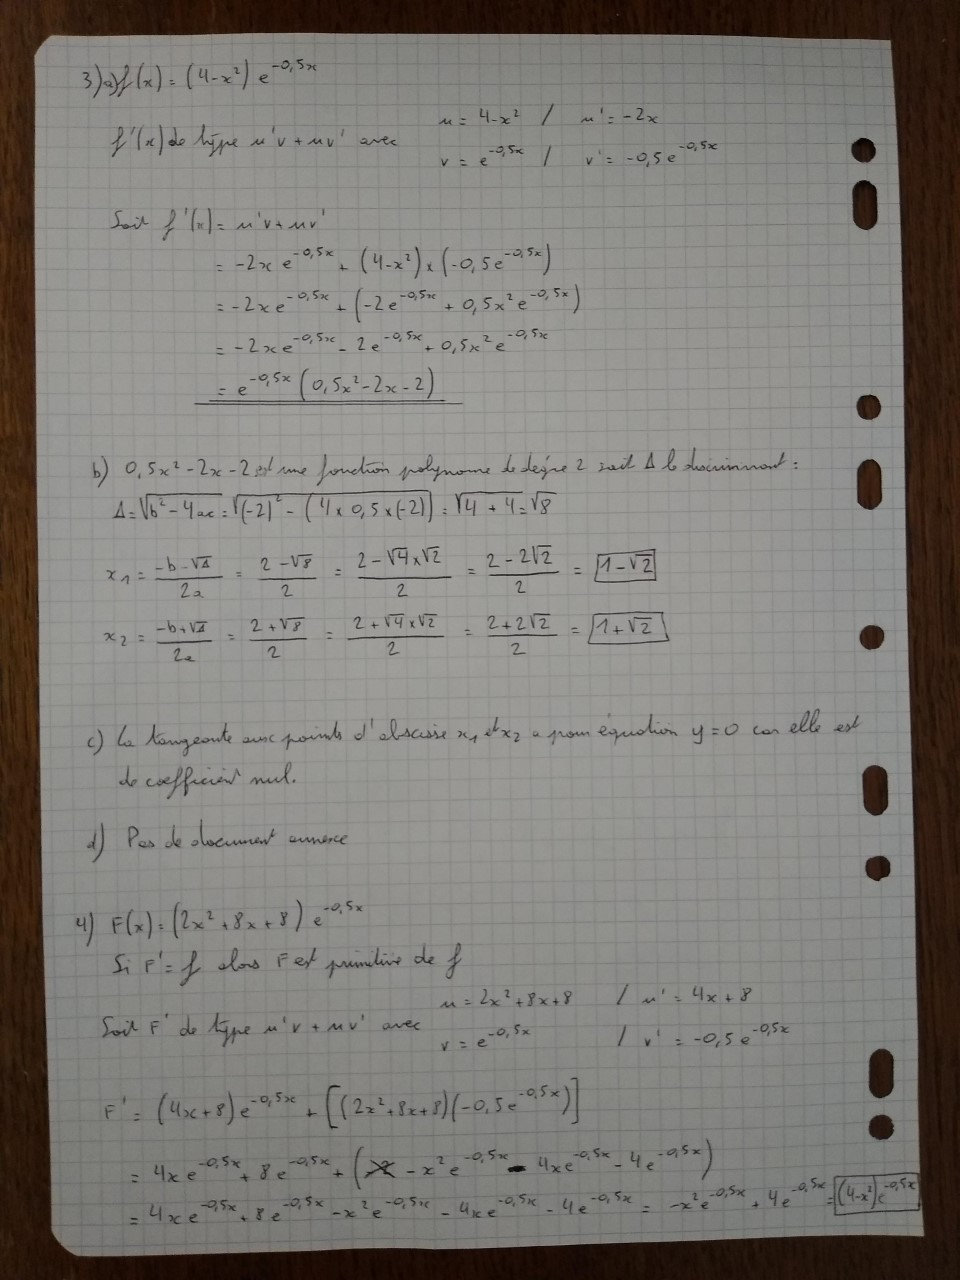 3) a) f(x) = (4-x²) e^{-0,5x}
f'(x) de type u'v + uv' avec
u = 4-x² / u' = -2x
v = e^{-0,5x} / v' = -0,5e^{-0,5x}
Soit f'(x) = u'v + uv'
= -2x e^{-0,5x} + (4-x²) × (-0,5e^{-0,5x})
= -2xe^{-0,5x} + (-2e^{-0,5x} + 0,5x²e^{-0,5x})
= -2xe^{-0,5x} - 2e^{-0,5x} + 0,5x²e^{-0,5x}
= e^{-0,5x} (0,5x²-2x-2)
b) 0,5x²-2x-2 est une fonction polynome de degre 2 soit Δ le discriminant :
Δ = √(b²-4ac) = √((-2)² - (4 × 0,5 × (-2))) = √(4 + 4) = √8
x₁ = (-b-√Δ)/2a = (2-√8)/2 = (2-√4×√2)/2 = (2-2√2)/2 = 1-√2
x₂ = (-b+√Δ)/2a = (2+√8)/2 = (2+√4×√2)/2 = (2+2√2)/2 = 1+√2
c) La tangeante aux points d'abscisse x₁ et x₂ a pour équation y=0 car elle est
de coefficient nul.
d) Pas de document annexe
4) F(x) = (2x²+8x+8) e^{-0,5x}
Si F' = f alors F est primitive de f
Soit F' de type u'v + uv' avec
u = 2x²+8x+8 / u' = 4x+8
v = e^{-0,5x} / v' = -0,5e^{-0,5x}
F' = (4x+8)e^{-0,5x} + [(2x²+8x+8)(-0,5e^{-0,5x})]
= 4xe^{-0,5x} + 8e^{-0,5x} + (-x²e^{-0,5x} - 4xe^{-0,5x} - 4e^{-0,5x})
= 4xe^{-0,5x} + 8e^{-0,5x} - x²e^{-0,5x} - 4xe^{-0,5x} - 4e^{-0,5x} = -x²e^{-0,5x} + 4e^{-0,5x} = (4-x²)e^{-0,5x}